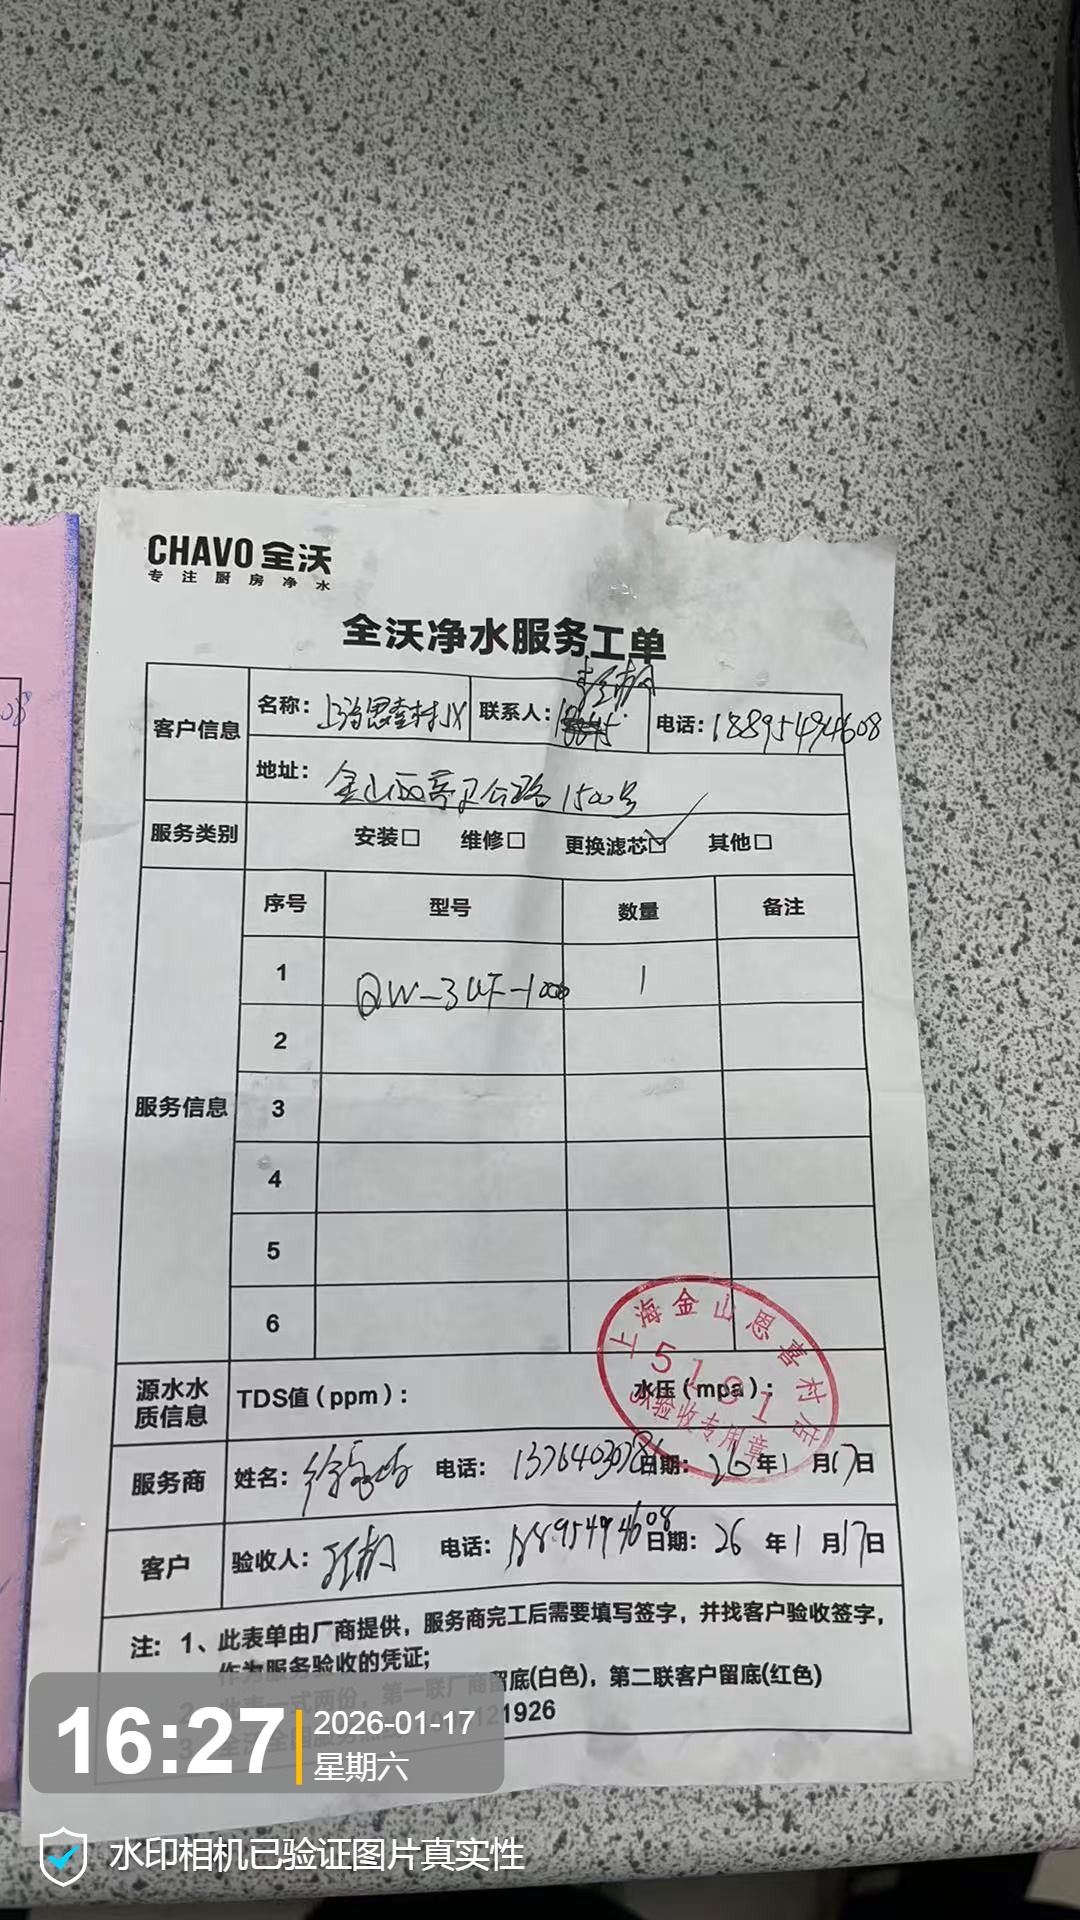 CHAVO 全沃
专注厨房净水
全沃净水服务工单
客户信息
名称：上海恩喜村JX
联系人：
电话：18895494608
地址：金山西静卫公路1500号
服务类别
安装□ 维修□ 更换滤芯☑ 其他□
服务信息
序号 型号 数量 备注
1 QW-3UF-1000 1
2
3
4
5
6
源水水质信息
TDS值（ppm）：
水压（mpa）：
上海金山恩喜村店
5101
验收专用章
服务商
姓名：
电话：13764030786
日期：26年1月17日
客户
验收人：
电话：18895494608
日期：26年1月17日
注：1、此表单由厂商提供，服务商完工后需要填写签字，并找客户验收签字，
作为服务验收的凭证；
2、此表一式两份，第一联厂商留底(白色)，第二联客户留底(红色)
3、全沃全国服务热线 121926
16:27
2026-01-17
星期六
水印相机已验证图片真实性